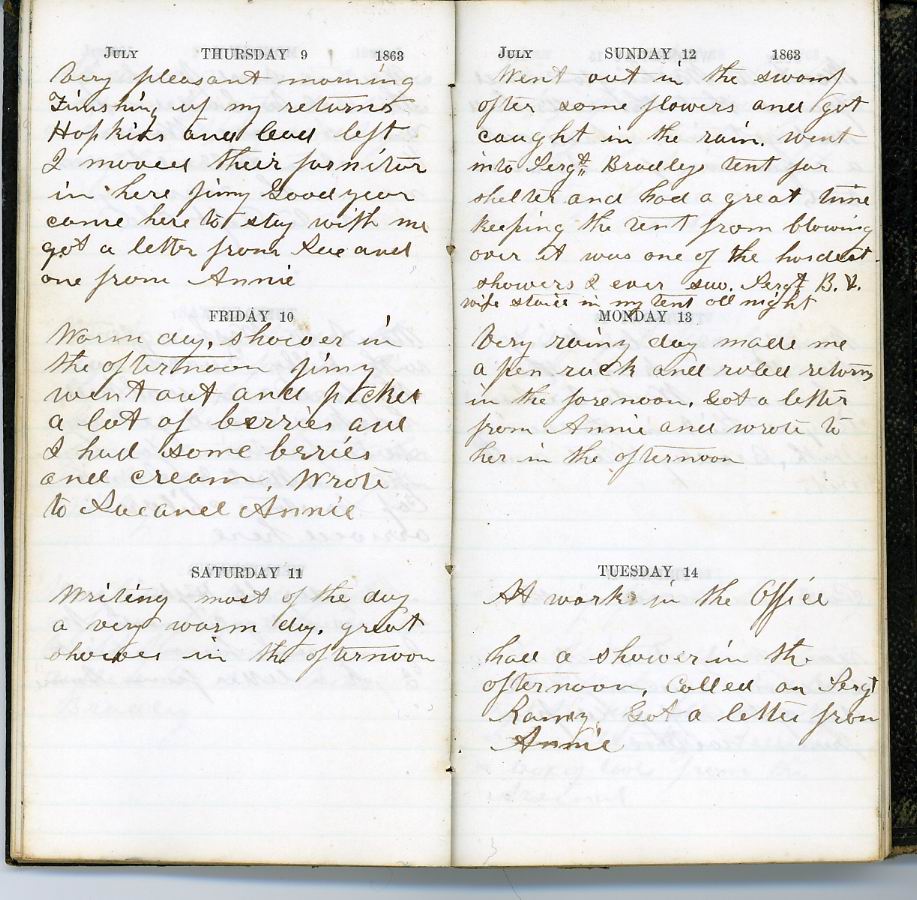 July THURSDAY 9 1863
Very pleasant morning
Finishing up my returns
Hopkins and left
I moved their furnitur
in here Jimy Goodyear
came here to stay with me
got a letter from Sue and
one from Annie
FRIDAY 10
Warm day, shower in
the afternoon Jimy
went out and picked
a lot of berries and
I had some brries
and cream. Wrote
to Sue and Annie
SATURDAY 11
Writing most of the day
a very warm day. great
showers in the afternoon
July SUNDAY 12 1863
Went out in the swamp
after some flowers and got
caught in the rain. went
into Sergt. Bradleys tent for
shelter and had a great time
keeping the tent from blowing
over it was one of the hardest
showers I ever saw. Sergt B. &
wife staid in my tent all night
MONDAY 13
Very rainy day made me
a pen rack and ruled returns
in the forenoon. Got a letter
from Annie and wrote to
her in the afternoon
TUESDAY 14
At work in the Office
had a shower in the
afternoon, Called on Sergt
Got a letter from
Annie